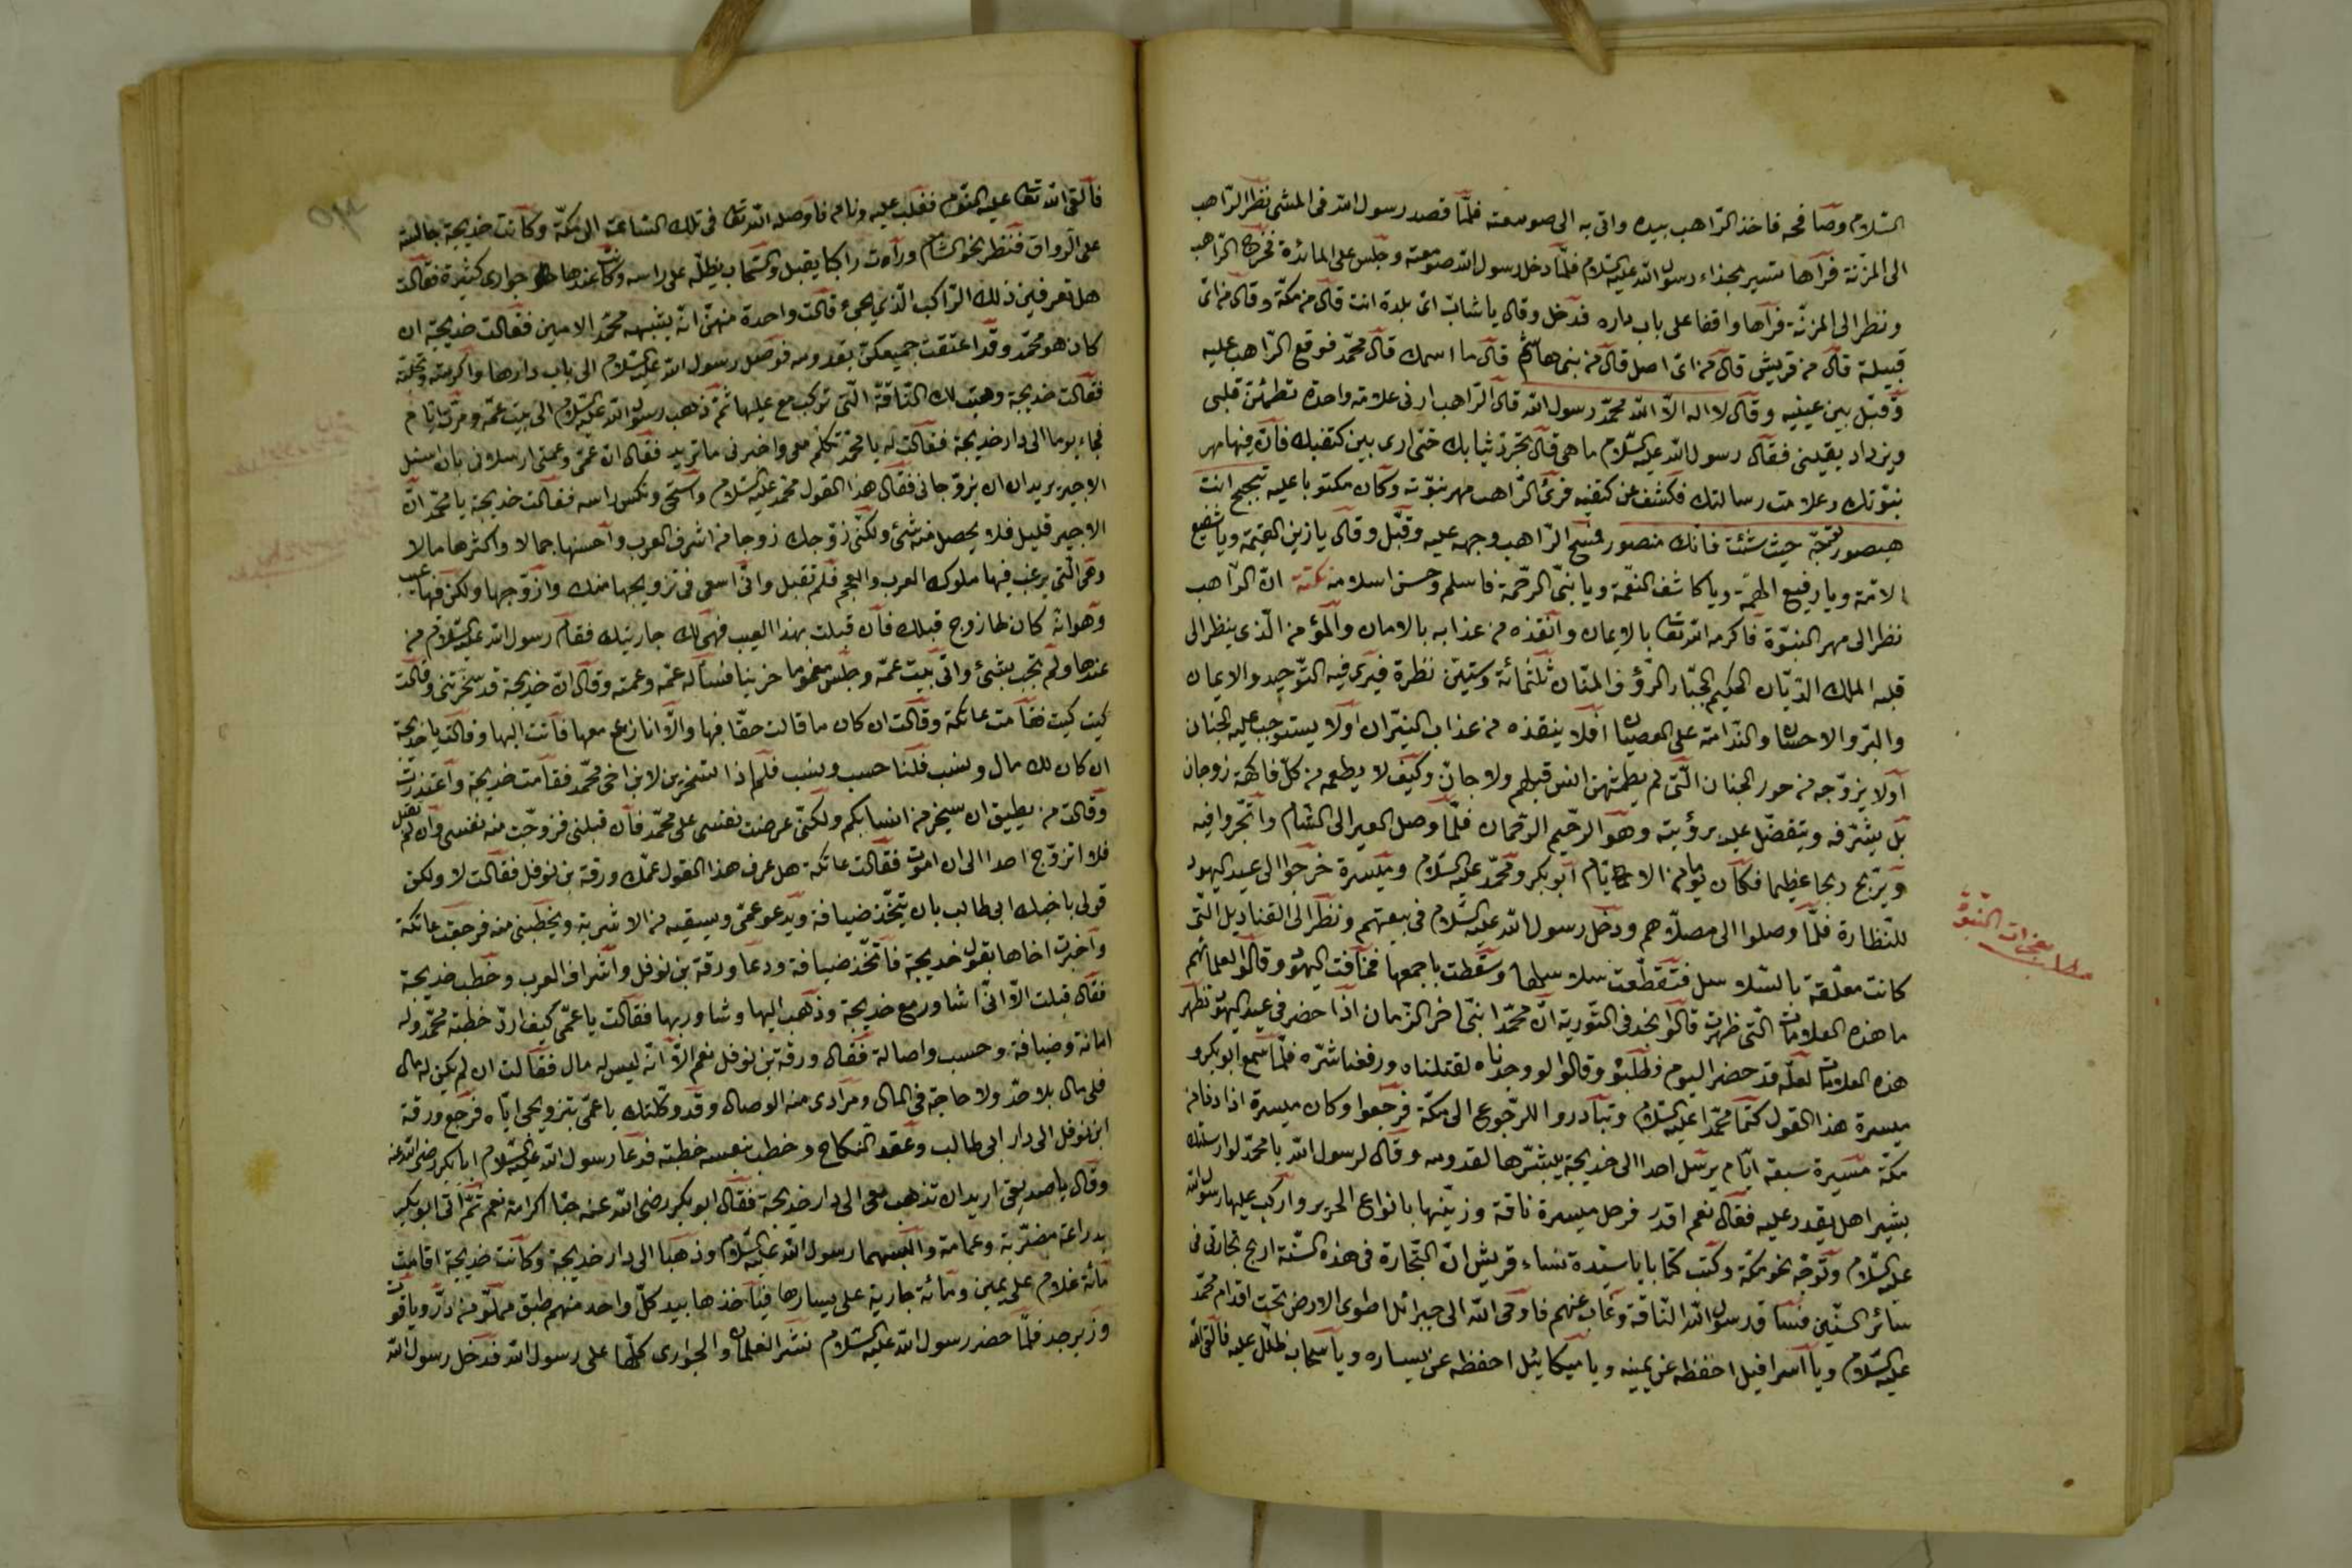 السّلام وصافحه فاخذ الرّاهب بيده واتى به الى صومعته فلمّا قصد رسول الله فى المشى نظر الرّاهب
الى المزنة فرآها تسير بحذاء رسول الله عليه السّلام فلمّا دخل رسول الله صومعته وجلس على المائدة فخرج الرّاهب
ونظر الى المزنة فرآها واقفا على باب داره فدخل وقال يا شابّ اىّ بلدة انت قال من مكّة وقال من اىّ
قبيلة قال من قريش قال من اىّ اصل قال من بنى هاشم قال ما اسمك قال محمّد فوقع الرّاهب عليه
وقبّل بين عينيه وقال لا اله الّا الله محمّد رسول الله قال الرّاهب ارنى علامة واحدة تطمئنّ قلبى
ويزداد يقينى فقال رسول الله عليه السّلام ما هى قال تجرّد ثيابك حتّى ارى بين كتفيك فانّ فيها مهر
نبوّتك وعلامت رسالتك فكشف عن كتفيه فرئ الرّاهب مهر نبوّته وكان مكتوبا عليه انت
توجّه حيث شئت فانّك منصور فمسح الرّاهب وجهه عليه وقبّل وقال يا زين القيمة ويا شفيع
الامّة ويا رفيع الهمّة ويا كاشف الغمّة ويا نبىّ الرّحمة فاسلم وحسن اسلامه نكتة انّ الرّاهب
نظر الى مهر النبوّة فاكرمه الله تعا بالايمان وانقذه من عذابه بالامان والمؤمن الّذى ينظر الى
قلبه الملك الدّيّان الحكيم الجبّار الرّؤف المنّان ثلثمائة وستّين نظرة فيرى فيه التّوحيد والايمان
والبرّ والاحسان والنّدامة على العصيان افلا ينقذه من عذاب النيران اولا يستوجب عليه الجنان
اولا يزوّجه من حور الجنان الّتى لم يطمثهنّ انس قبلهم ولا جانّ وكيف لا يطعمه من كلّ فاكهة زوجان
بل يشرّفه ويتفضّل عليه برؤيته وهو الرّحيم الرّحمان فلمّا وصل العير الى الشام واتّجروا فيه
وبربح ربحا عظيما فكان يوم من الايّام ابو بكر ومحمّد عليه السّلام وميسرة خرجوا الى عيد اليهود
للنّظارة فلمّا وصلوا الى مصلّاهم ودخل رسول الله عليه السّلام فى بيعتهم ونظر الى القناديل الّتى
كانت معلّقة بالسّلاسل فتقطّعت سلاسلها وسقطت باجمعها فخافت اليهود وقالوا لعلمائهم
ما هذه العلامات الّتى ظهرت قالوا نجد فى التّورية انّ محمّدا نبىّ آخر الزّمان اذا حضر فى عيد اليهود تظهر
هذه العلامات لعلّه قد حضر اليوم فطلبوه وقالوا لو وجدناه لقتلناه ورفعنا شرّه فلمّا سمع ابو بكر و
ميسرة هذا القول كتما محمّدا عليه السّلام وتبادروا للرّجوع الى مكّة فرجعوا وكان ميسرة اذا دنا من
مكّة مسيرة سبعة ايّام يرسل احدا الى خديجة يبشّرها لقدومه وقال لرسول الله يا محمّد لو ارسلتك
بشيرا هل يقدر عليه فقال نعم اقدر فرحل ميسرة ناقة وزيّنها بانواع الحرير واركب عليها رسول الله
عليه السّلام وتوجّه نحو مكّة وكتب كتابا يا سيّدة نساء قريش انّ التّجارة فى هذه السّنة اربح تجارتى فى
سائر السّنين فساق رسول الله النّاقة وغاب عنهم فاوحى الله الى جبرائل اطوى الارض تحت اقدام محمّد
عليه السّلام ويا اسرافيل احفظه عن يمينه ويا ميكائيل احفظه عن يساره ويا سحاب ظلّل عليه فالقى الله
مطلب معجزات النّبوّة
فالقى الله تعا عليه النّوم فغلب عليه ونام فاوصله الله تعا فى تلك السّاعة الى مكّة وكانت خديجة جالسة
على الرّواق فنظر نحو الشام ورأت راكبا يقبل والسّحاب يظلّه على راسه وكانت عندها جوارى كثيرة فقالت
هل تعرفين ذلك الرّاكب الّذى يجئ قالت واحدة منهنّ انّه يشبهه محمّد الامين فقالت خديجة ان
كان هو محمّد وقد اعتقت جميعكنّ بقدومه فوصل رسول الله عليه السّلام الى باب دارها واكرمته
فقالت خديجة وهبت لك النّاقة الّتى تركب مع عليها ثمّ ذهب رسول الله عليه السّلام الى بيت عمّه ومرّت ايّام
فجاء يوما الى دار خديجة فقالت له يا محمّد تكلّم معى واخبرنى ما تريد فقال انّ عمّى وعمّتى ارسلانى بان اسئل
الاجير يريدان ان يزوّجانى فقال هذا القول محمّد عليه السّلام واستحى ونكس راسه فقالت خديجة يا محمّد انّ
الاجير قليل فلا يحصل منه شئ ولكنّى زوّجك زوجا من اشرف العرب واحسنها جمالا واكثرها مالا
وهى الّتى يرغب فيها ملوك العرب والعجم فلم تقبل وانّى اسعى فى تزويجها منك وازوّجها ولكن فيها عيب
وهو انّه كان لها زوج قبلك فان قبلت بهذا العيب فهى لك جاريتك فقام رسول الله عليه السّلام من
عندها ولم يجب بشئ واتى بيت عمّه وجلس مغموما حزينا فساله عمّه وعمّته وقال انّ خديجة قد سخرتنى وقالت
كيت كيت فقامت عاتكة وقالت ان كان ما قالت حقّا فبها والّا انازع معها فاتت اليها وقالت يا خديجة
ان كان لك مال ونسب فلنا حسب ونسب فلما ذا تسخرين لابن اخى محمّد فقامت خديجة واعتذرت
وقالت من يطيق ان يسخر من انسابكم ولكنّى عرضت نفسى على محمّد فان قبلنى فزوّجت منه نفسى وان لم يقبل
فلا اتزوّج احدا الى ان اموت فقالت عاتكة هل عرف هذا القول عمّك ورقة بن نوفل فقالت لا ولكن
قولى باخيك ابى طالب بان يتّخذ ضيافة ويدعو عمّى ويسقيه من الاشربة ويخطبنى منه فرجعت عاتكة
واخبرت اخاها بقول خديجة فاتّخذ ضيافة ودعا ورقة بن نوفل واشراف العرب وخطب خديجة
فقال قبلت الّا انّى اشاور مع خديجة وذهب اليها وشاور بها فقالت يا عمّى كيف اردّ خطبة محمّد وله
امانة وضيافة وحسب واصالة فقال ورقة بن نوفل نعم الّا انّه ليس له مال فقالت ان لم يكن له مال
فلى مال بلا حدّ ولا حاجة فى المال ومرادى منه الوصال وقد وكّلتك يا عمّى بتزويجى ايّاه فرجع ورقة
ابن نوفل الى دار ابى طالب وعقد النّكاح وخطب بنفسه خطبته فدعا رسول الله عليه السّلام ابا بكر رضى الله عنه
وقال يا صديقى اريد ان تذهب معى الى دار خديجة فقال ابو بكر رضى الله عنه حبّا اكرامة نعم ثمّ اتى ابو بكر
بدراعة مضرّبة وعمامة والبسهما رسول الله عليه السّلام وذهبا الى دار خديجة وكانت خديجة اقامت
مائة غلام على يمين ومائة جارية على يسارها فياخذها بيد كلّ واحد منهم طبق مملوّ من درّ وياقوت
وزبرجد فلمّا حضر رسول الله عليه السّلام نشر الغلمان والجوارى كلّها على رسول الله فدخل رسول الله